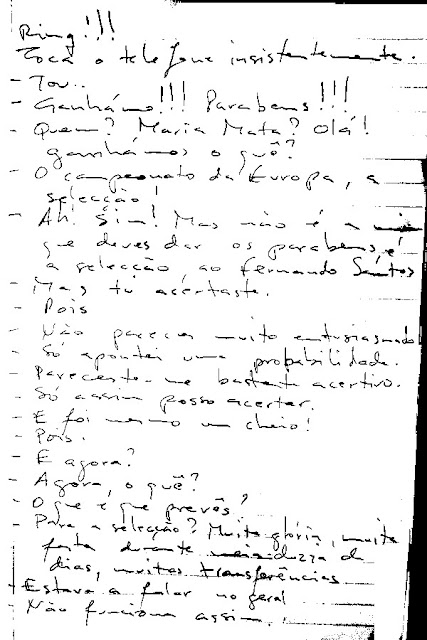 Ring!!!
Toca o telefone insistentemente.
- Tou..
- Ganhámo!!! Parabens!!!
- Quem? Maria Mata? Olá!
ganhámos o quê?
- O campeonato da Europa, a
selecção!
- Ah! Sim! Mas não é a mim
que deves dar os parabens, é
a selecção, ao Fernando Santos
- Mas tu acertaste.
- Pois
- Não pareces muito entusiasmado
- Só apontei uma probabilidade.
- Pareceste-me bastante acertivo.
- Só assim posso acertar.
- E foi mesmo um cheio!
- Pois.
- E agora?
- Agora, o quê?
- O que é que prevês?
- Para a selecção? Muita glória, muita
festa durante meia duzia de
dias, muitas transferências
- Estava a falar no geral
- Não funciona assim.